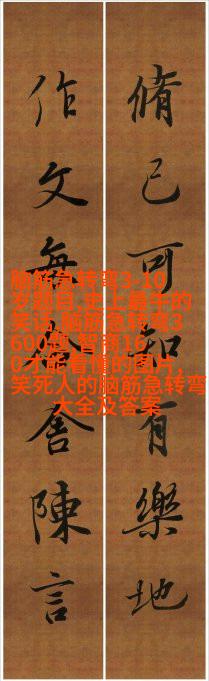 脩己可知有樂地
作文無舍陳言
脑筋急转弯3-10
岁题目,史上最牛的
笑话,脑筋急转弯3
600题,智商16
0才能看懂的图片,
笑死人的脑筋急转弯
大全及答案